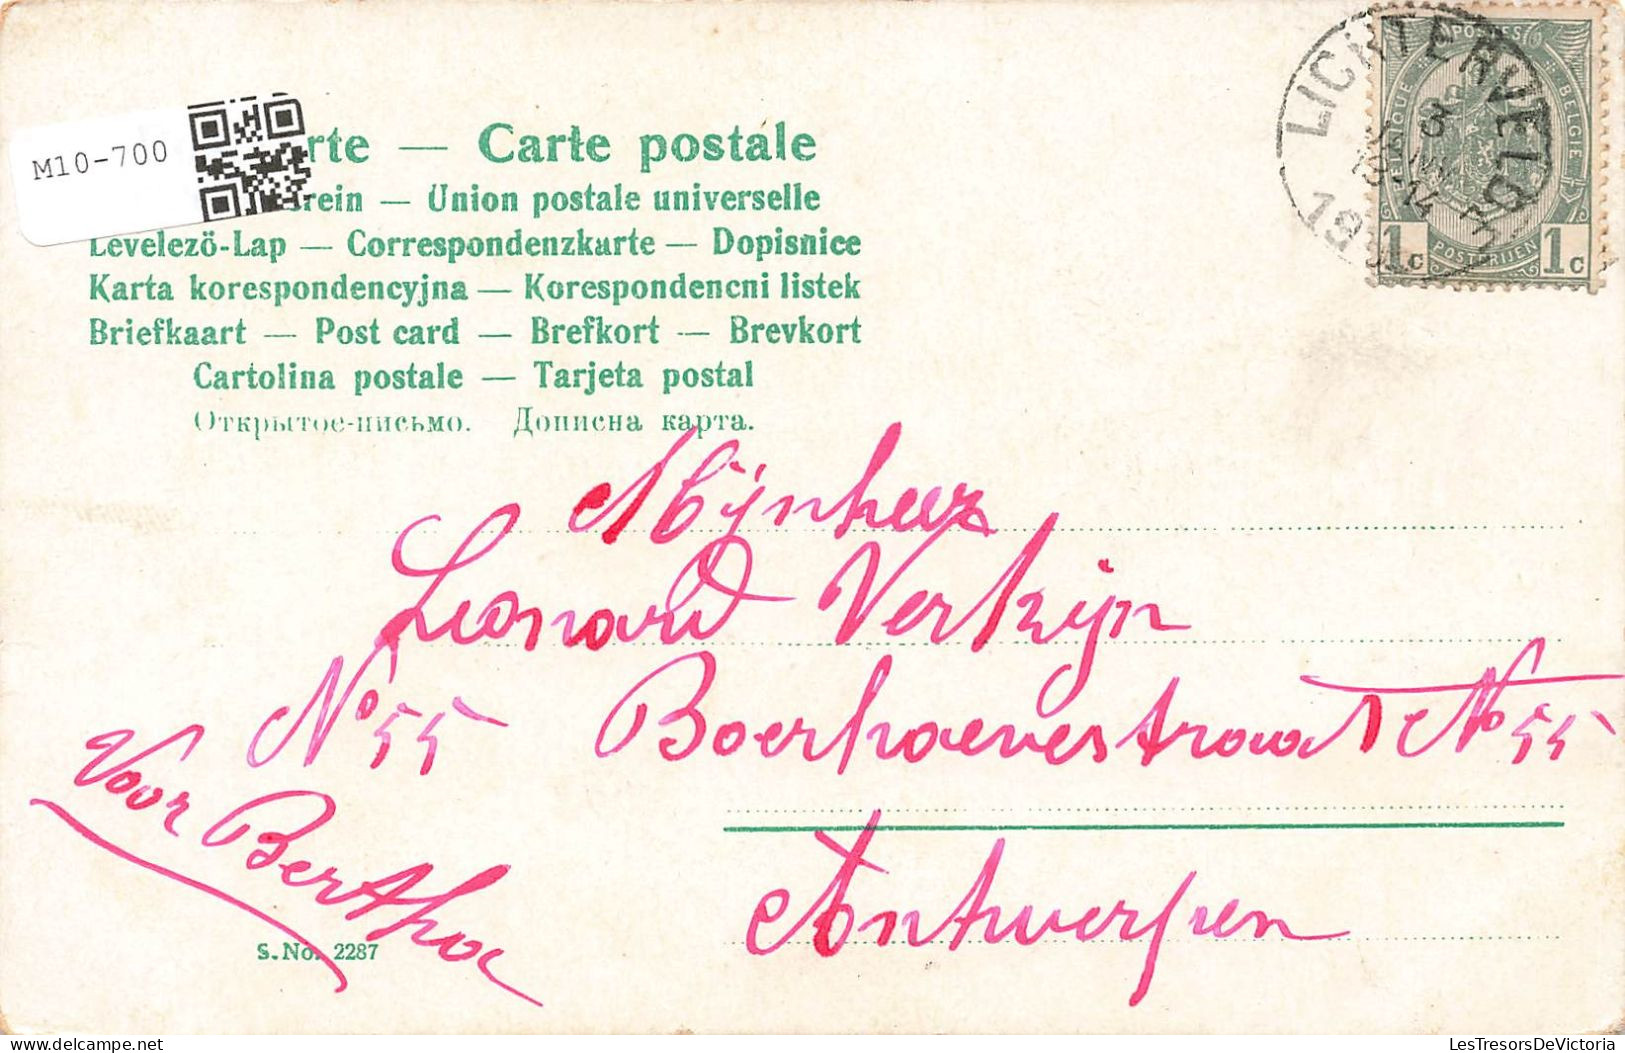 M10-700
rte — Carte postale
rein — Union postale universelle
Levelező-Lap — Correspondenzkarte — Dopisnice
Karta korespondencyjna — Korespondencni listek
Briefkaart — Post card — Brefkort — Brevkort
Cartolina postale — Tarjeta postal
Открытое-письмо. Дописна карта.
LICHTERVELDE
POSTES
BELGIQUE
BELGIË
1c POSTERIJEN 1c
Mijnheer
Leonard Verkijn
No 55 Boerhaevestraat No 55
Voor Bertha
Antwerpen
S. No. 2287
delcampe.net
LesTresorsDeVictoria